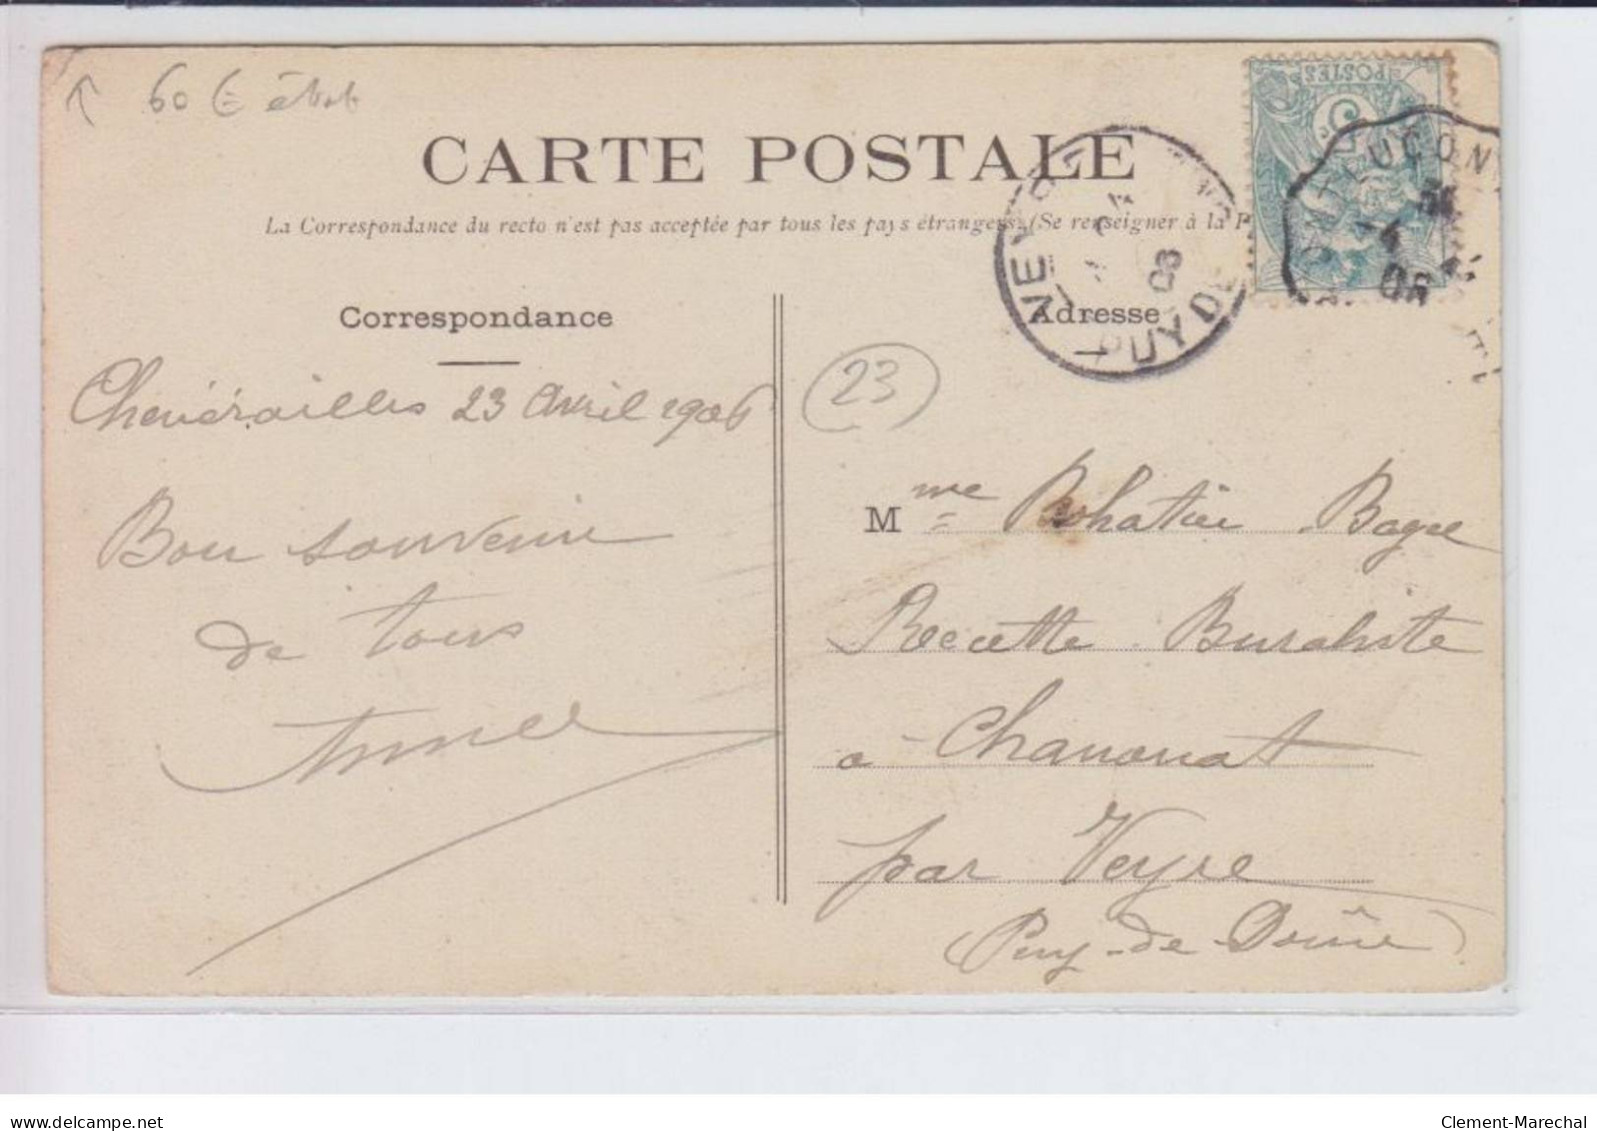 60 € état
CARTE POSTALE
La Correspondance du recto n'est pas acceptée par tous les pays étrangers. (Se renseigner à la P
Correspondance
Adresse
POSTES
MONTLUÇON
06
VEYRE
08
PUY DE
Chénérailles 23 Avril 1906
23
Bon souvenir
de tous
Mme Bohatier Bagre
Recette Buraliste
à Chanonat
par Veyre
(Puy-de-Dôme)
Clement-Marechal
delcampe.net